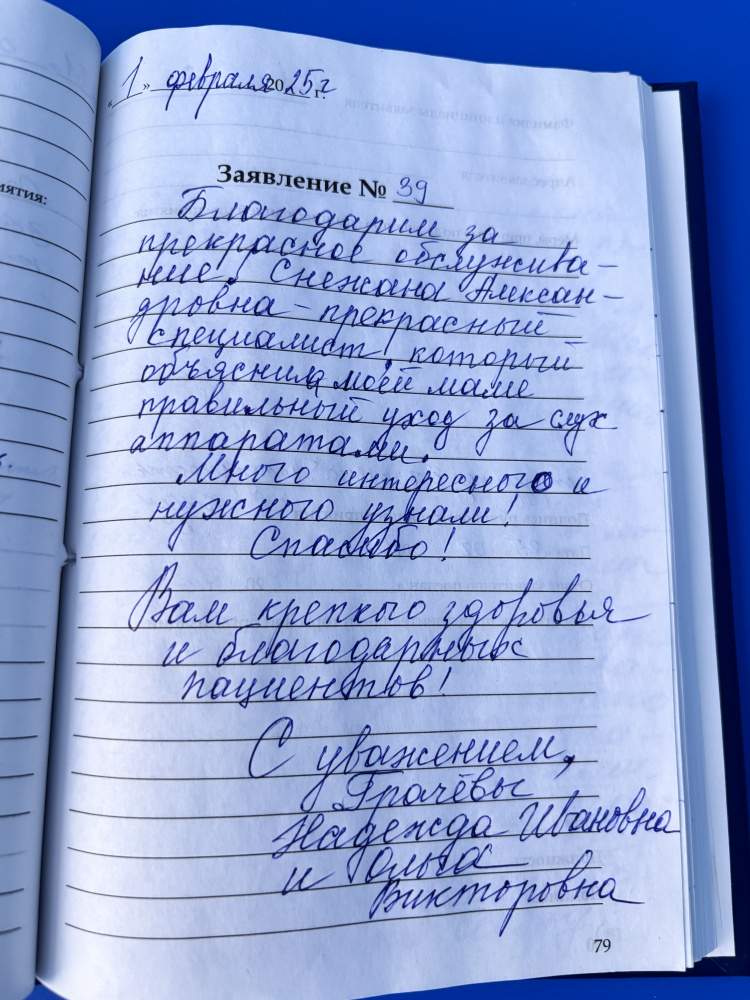 «1» февраля 2025 г.
Заявление № 39
Благодарим за
прекрасное обслужива-
ние. Снежана Алексан-
дровна - прекрасный
специалист, который
объяснила моей маме
правильный уход за слух
аппаратами.
Много интересного и
нужного узнали!
Спасибо!
Вам крепкого здоровья
и благодарных
пациентов!
С уважением,
Грачёвы
Надежда Ивановна
и Ольга
Викторовна
79
иятия: